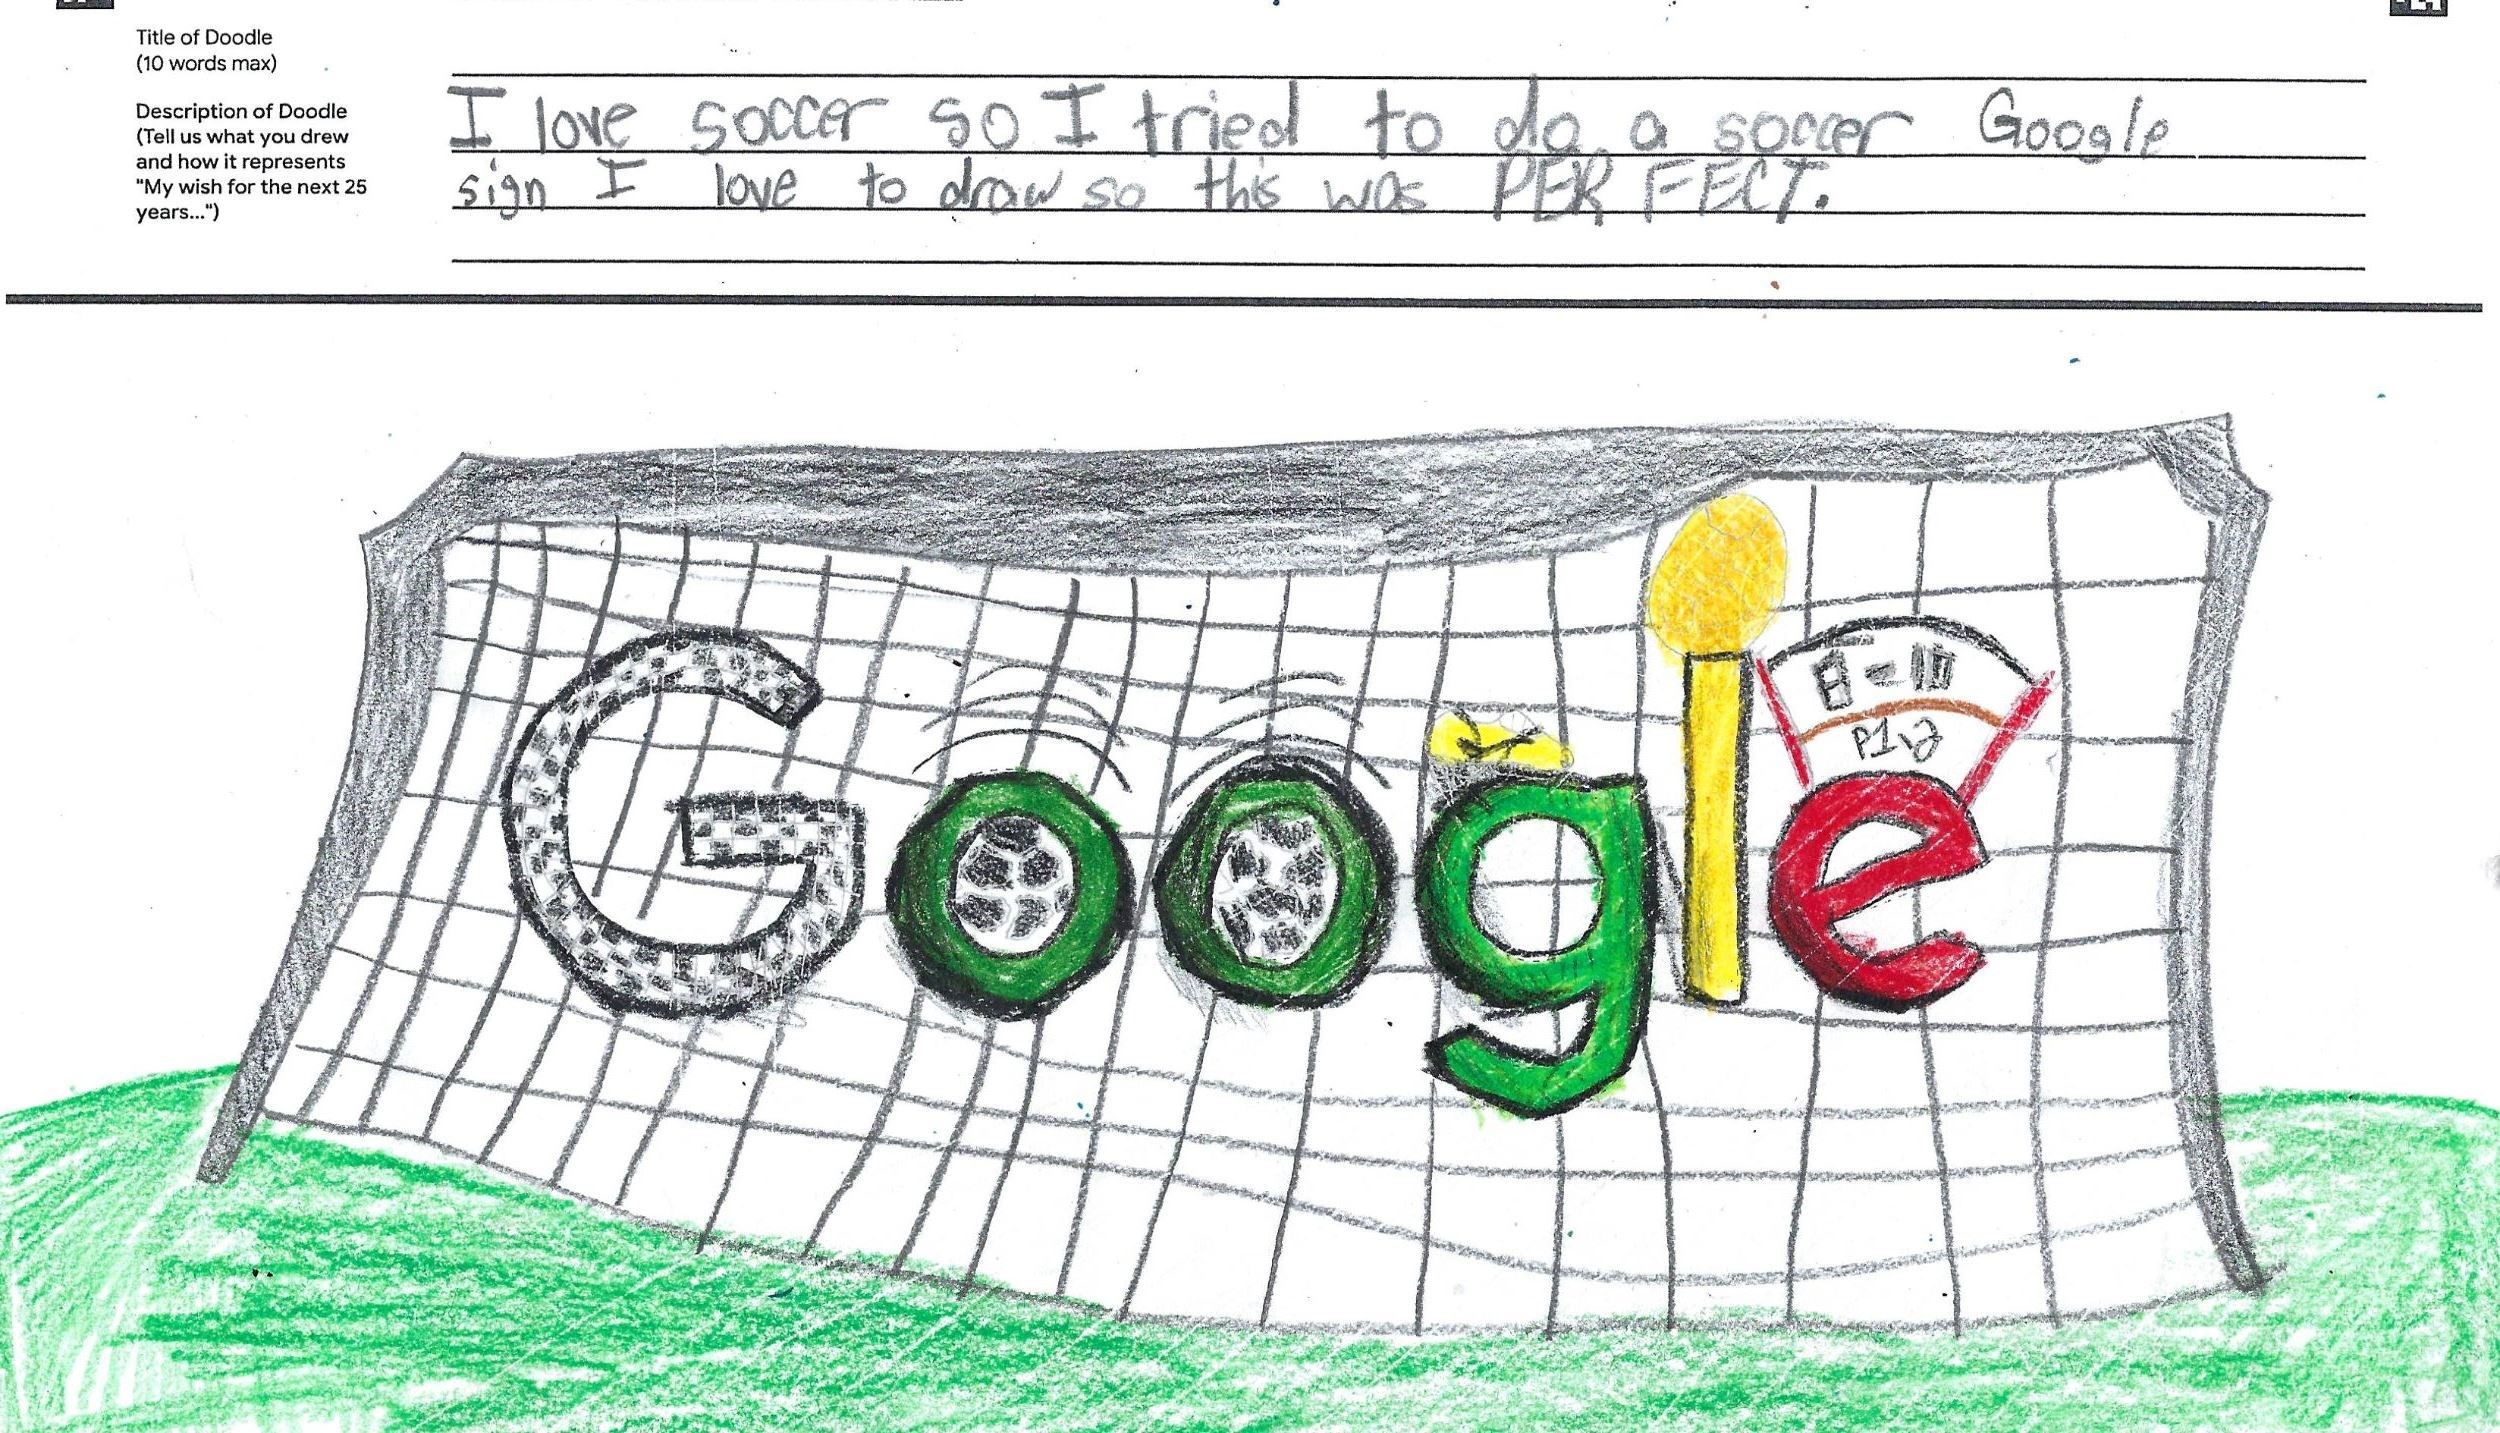 Title of Doodle
(10 words max)
Description of Doodle
(Tell us what you drew
and how it represents
"My wish for the next 25
years...")
I love soccer so I tried to do a soccer Google
sign I love to draw so this was PERFECT.
Google
8-10
P1\2